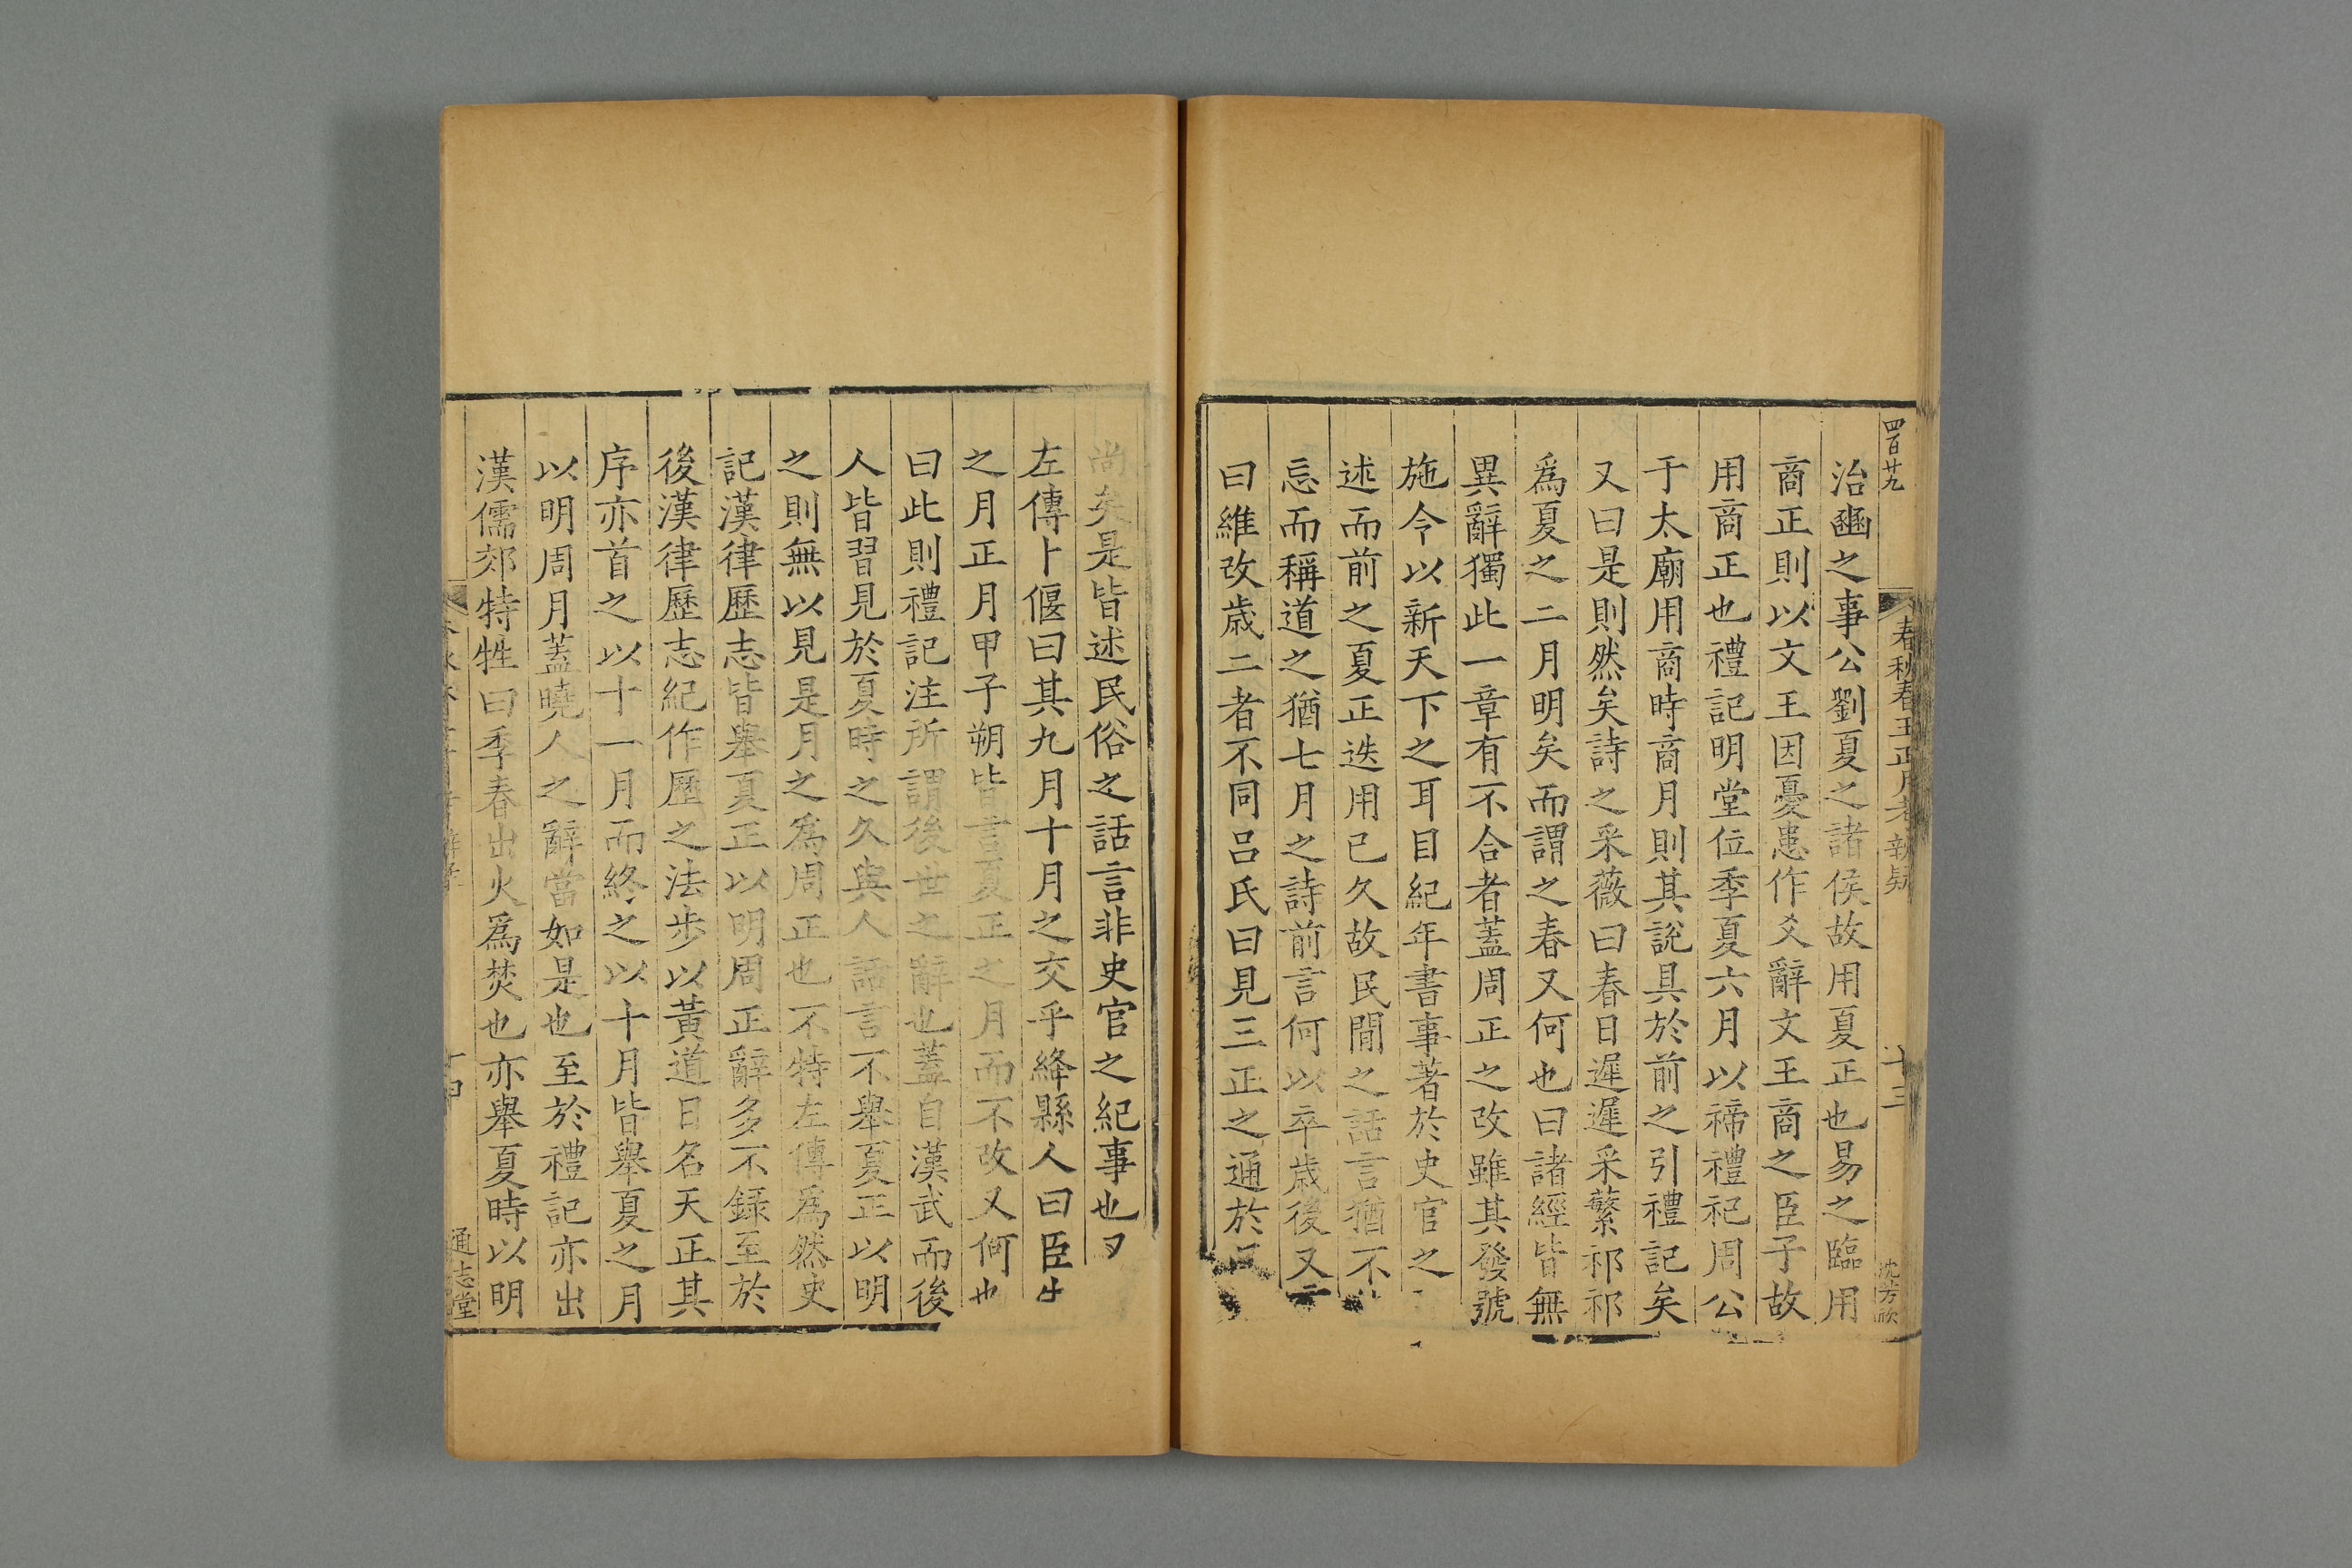 四百廿九
春秋春王正月考辨疑
十三
沈芳欣
治豳之事公劉夏之諸侯故用夏正也易之臨用
商正則以文王因憂患作爻辭文王商之臣子故
用商正也禮記明堂位季夏六月以禘禮祀周公
于太廟用商時商月則其說具於前之引禮記矣
又曰是則然矣詩之采薇曰春日遲遲采蘩祁祁
爲夏之二月明矣而謂之春又何也曰諸經皆無
異辭獨此一章有不合者蓋周正之改雖其發號
施令以新天下之耳目紀年書事著於史官之
述而前之夏正迭用已久故民間之話言猶不
忘而稱道之猶七月之詩前言何以卒歲後又
曰維改歲二者不同呂氏曰見三正之通於
尚矣是皆述民俗之話言非史官之紀事也
左傳卜偃曰其九月十月之交乎絳縣人曰臣生
之月正月甲子朔皆言夏正之月而不改又何也
曰此則禮記注所謂後世之辭也蓋自漢武而後
人皆習見於夏時之久與人話言不舉夏正以明
之則無以見是月之爲周正也不特左傳爲然史
記漢律歷志皆舉夏正以明周正辭多不録至於
後漢律歷志紀作歷之法步以黃道日名天正其
序亦首之以十一月而終之以十月皆舉夏之月
以明周月蓋曉人之辭當如是也至於禮記亦出
漢儒郊特牲曰季春出火爲焚也亦舉夏時以明
通志堂